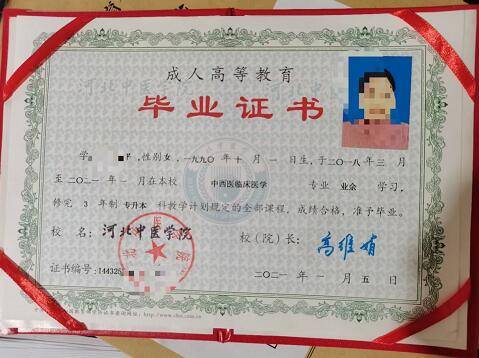 成人高等教育
毕业证书
学 ,性别女,一九九〇年十月一日生,于二〇一八年三月
至二〇二一年一月在本校 中西医临床医学 专业 业余 学习,
修完 3 年制 专升本 科教学计划规定的全部课程,成绩合格,准予毕业。
校 名: 河北中医学院 校(院)长: 高维娟
证书编号: 144325 二〇二一年一月五日